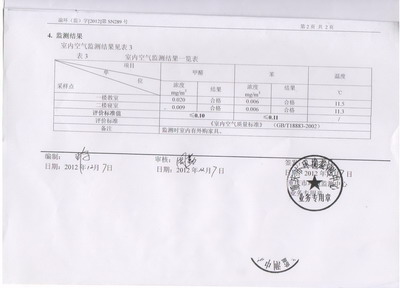 (监)字[2012]第SN289号
第2页 共2页
4. 监测结果
室内空气监测结果见表3
表3 室内空气监测结果一览表
项目 甲醛 苯 温度
采样点 浓度 mg/m³ 结果 浓度 mg/m³ 结果 ℃
一楼教室 0.020 合格 0.006 合格 11.5
二楼寝室 0.009 合格 0.006 合格 11.3
评价标准值 ≤0.10 ≤0.11 /
评价标准 《室内空气质量标准》(GB/T18883-2002)
备注 监测时室内有外购家具。
编制: 审核:
2012年12月7日 2012年12月7日 2012年
业务专用章